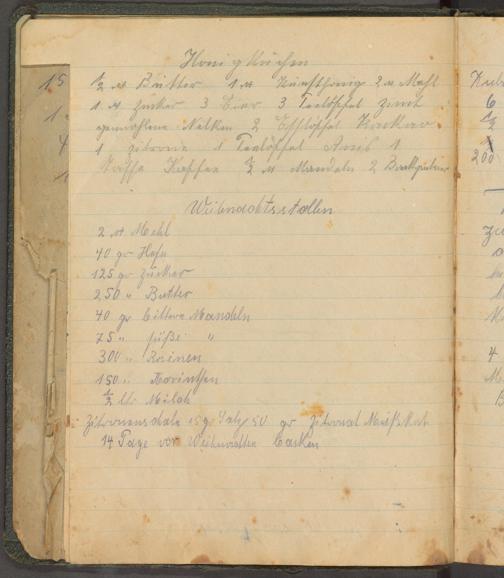 Honigkuchen
½ ℔ Butter 1 ℔ Kunsthonig 2 ℔ Mehl
1 ℔ Zucker 3 Eier 3 Teelöffel Zimt
gemahlene Nelken 2 Esslöffel Kackao
1 Zitrone 1 Teelöffel Anis 1
Tasse Kaffee ½ ℔ Mandeln 2 Backpulver
Weihnachtsstollen
2 ℔ Mehl
40 gr Hefe
125 gr Zucker
250 " Butter
40 gr bittere Mandeln
75 " süße "
300 " Rosinen
150 " Korinthen
½ ltr Milch
Zitronenschale 15 gr Salz 50 gr Zitronat Muskat
14 Tage vor Weihnachten backen
15
1
4
1
6
½
1
200
4